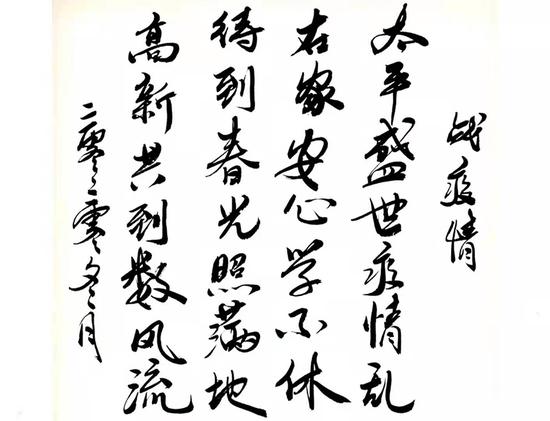 战疫情
太平盛世疫情乱
在家安心学不休
待到春光照满地
高新共到数风流
二零二零年二月